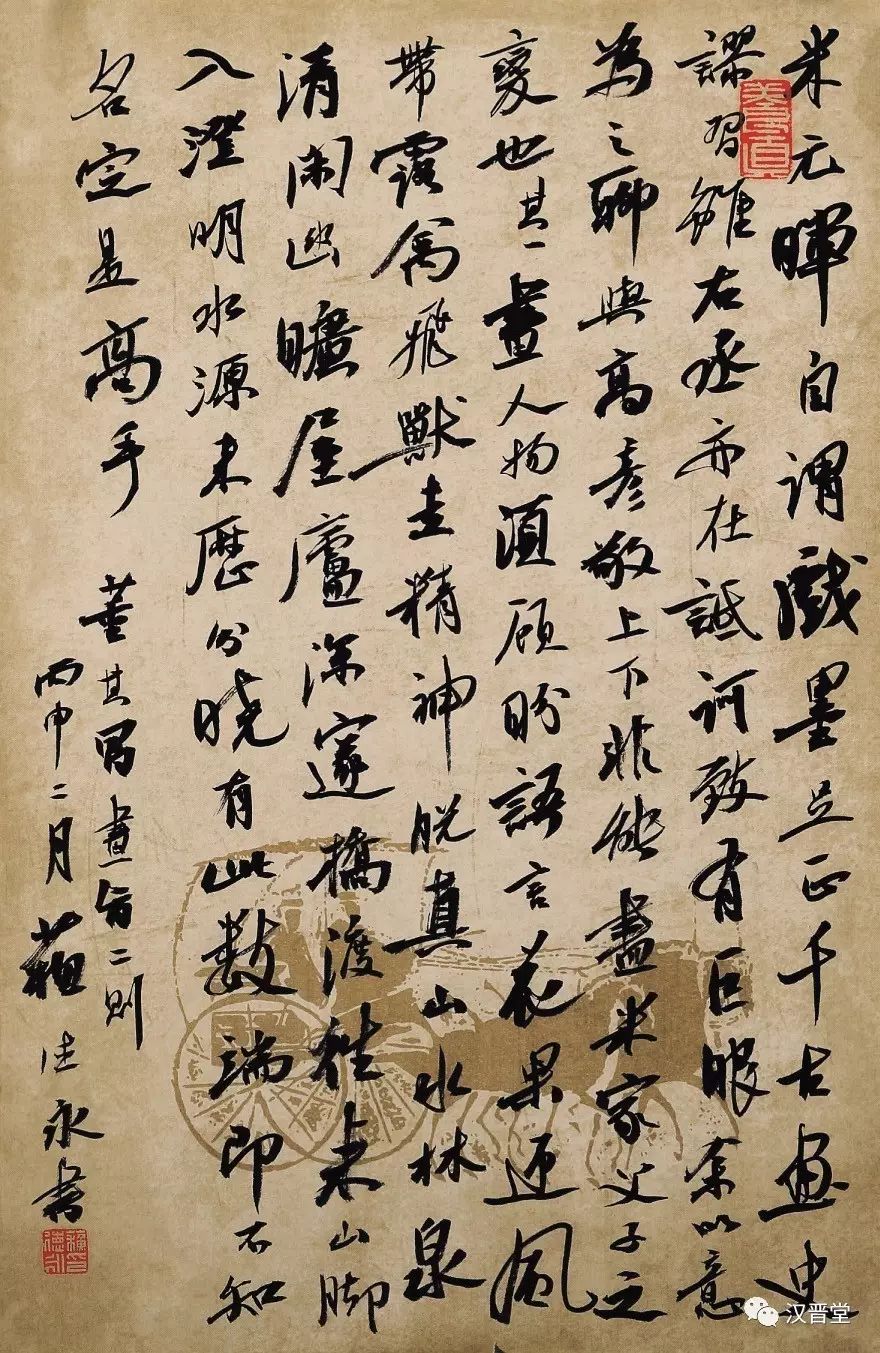 米元暉自謂戲墨足正千古畫史
謬習雖右丞亦在詆訶致有巨眼余以意
為之聊與高彦敬上下非能盡米家父子之
變也其一畫人物須顧盼語言花果迎風
帶露禽飛獸走精神脱真山水林泉
清闲幽曠屋廬深邃橋渡往来山脚
入澄明水源来歷分晓有此数端即不知
名定是高手 董其昌畫旨二則
丙申二月蘓德永書
汉晋堂